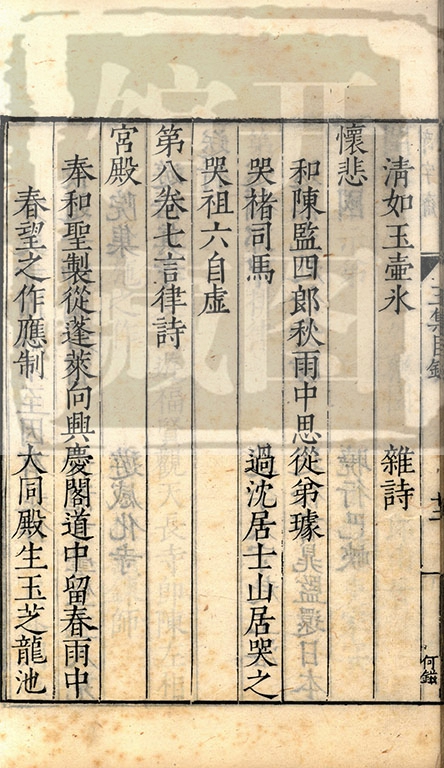 清如玉壺冰 雜詩
懷悲
和陳監四郎秋雨中思從弟璩
哭褚司馬 過沈居士山居哭之
哭祖六自虛
第八卷七言律詩
宮殿
奉和聖製從蓬萊向興慶閣道中留春雨中
春望之作應制 大同殿生玉芝龍池